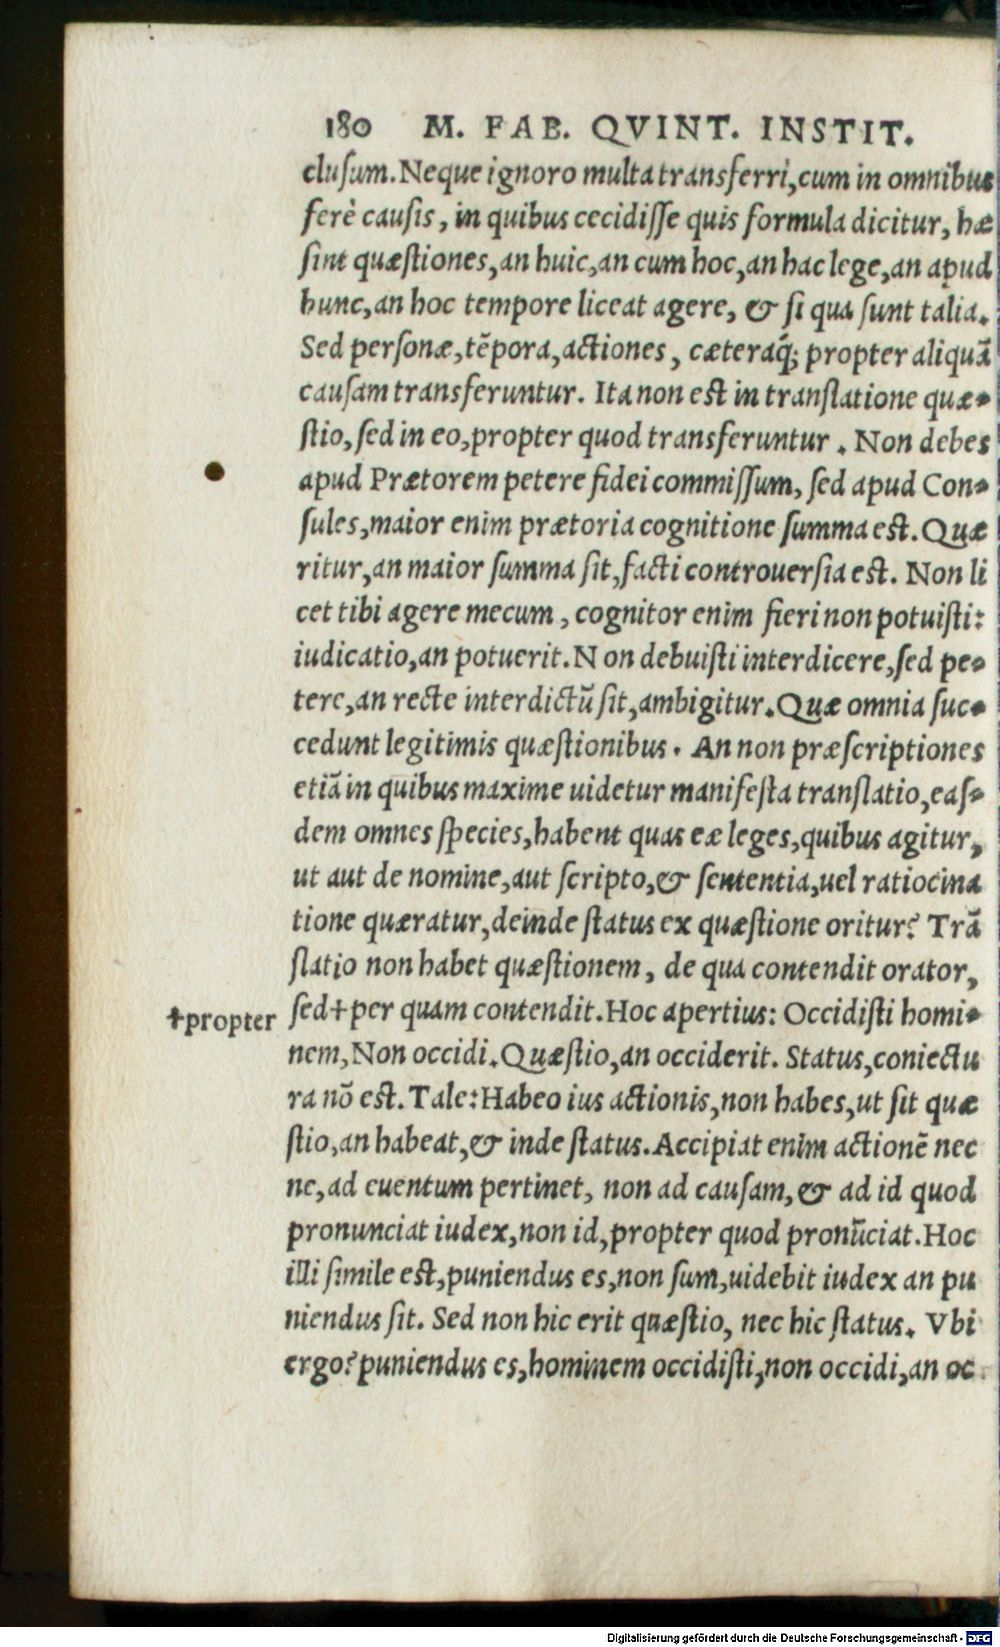 180 M. FAB. QVINT. INSTIT.
cluſum. Neque ignoro multa transferri, cum in omnibus
ferè cauſis, in quibus cecidiſſe quis formula dicitur, hæ
ſint quæſtiones, an huic, an cum hoc, an hac lege, an apud
hunc, an hoc tempore liceat agere, & ſi qua ſunt talia.
Sed perſonæ, tẽpora, actiones, cæteraq́; propter aliquã
cauſam transferuntur. Ita non eſt in tranſlatione quæ-
ſtio, ſed in eo, propter quod transferuntur. Non debes
apud Prætorem petere fidei commiſſum, ſed apud Con-
ſules, maior enim prætoria cognitione ſumma eſt. Quæ
ritur, an maior ſumma ſit, facti controuerſia eſt. Non li
cet tibi agere mecum, cognitor enim fieri non potuiſti:
iudicatio, an potuerit. N on debuiſti interdicere, ſed pe-
tere, an recte interdictũ ſit, ambigitur. Quæ omnia ſuc-
cedunt legitimis quæſtionibus. An non præſcriptiones
etiã in quibus maxime uidetur manifeſta tranſlatio, eaſ-
dem omnes ſpecies, habent quas eæ leges, quibus agitur,
ut aut de nomine, aut ſcripto, & ſententia, uel ratiocina
tione quæratur, deinde ſtatus ex quæſtione oritur? Trã
ſlatio non habet quæſtionem, de qua contendit orator,
ſed†per quam contendit. Hoc apertius: Occidiſti homi-
†propter
nem, Non occidi. Quæſtio, an occiderit. Status, coniectu
ra nõ eſt. Tale: Habeo ius actionis, non habes, ut ſit quæ
ſtio, an habeat, & inde ſtatus. Accipiat enim actionẽ nec
ne, ad euentum pertinet, non ad cauſam, & ad id quod
pronunciat iudex, non id, propter quod pronũciat. Hoc
illi ſimile eſt, puniendus es, non ſum, uidebit iudex an pu
niendus ſit. Sed non hic erit quæſtio, nec hic ſtatus. Vbi
ergo? puniendus es, hominem occidiſti, non occidi, an oc
Digitalisierung gefördert durch die Deutsche Forschungsgemeinschaft - DFG